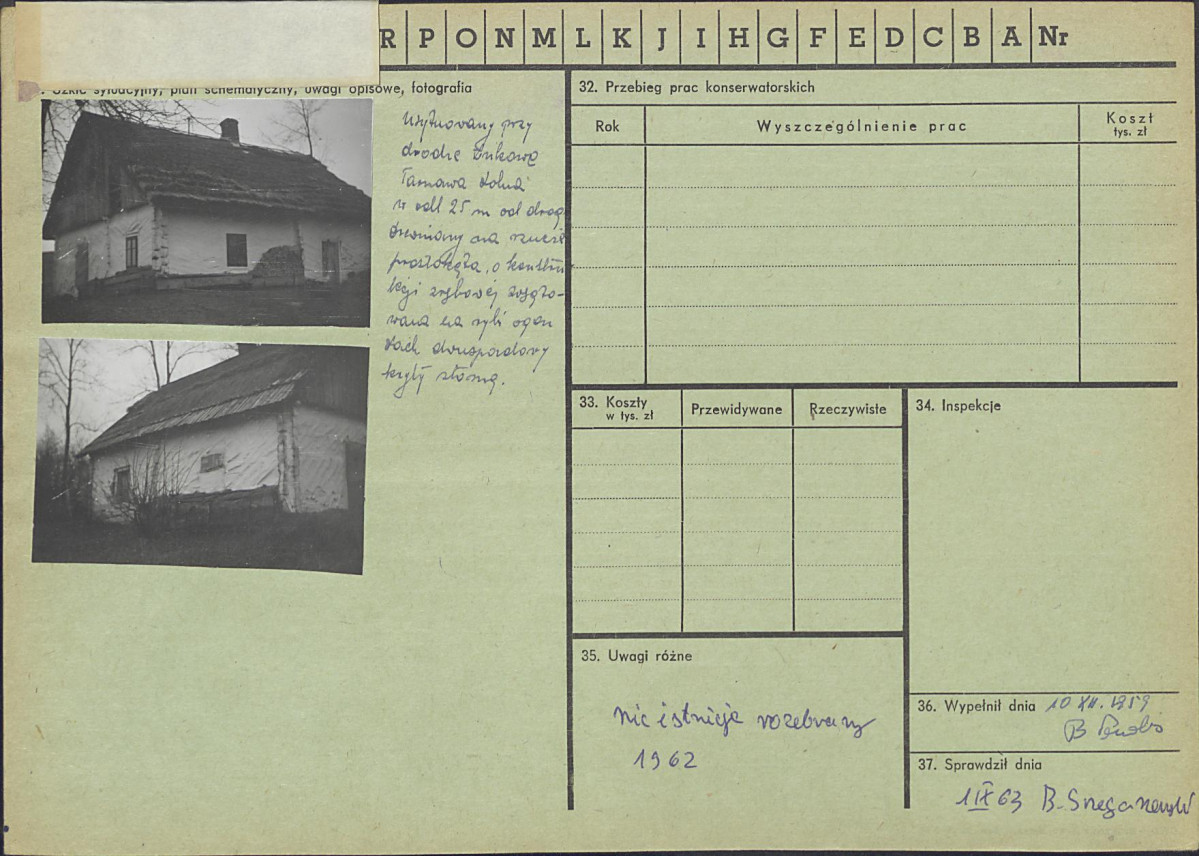 R P O N M L K J I H G F E D C B A Nr
. Szkic sytuacyjny, plan schematyczny, uwagi opisowe, fotografia
Usytuowany przy
drodze
Tarnawa Dolna
w odl 25 m od drogi
drewniany na rzucie
prostokąta, o konstru
kcji zrębowej
na ogon
dach dwuspadowy
kryty słomą.
32. Przebieg prac konserwatorskich
Rok
Wyszczególnienie prac
Koszt
tys. zł
33. Koszty
w tys. zł
Przewidywane
Rzeczywiste
34. Inspekcje
35. Uwagi różne
nie istnieje rozebrany
1962
36. Wypełnił dnia 10 XII. 1959
B
37. Sprawdził dnia
1 IX 63 B.